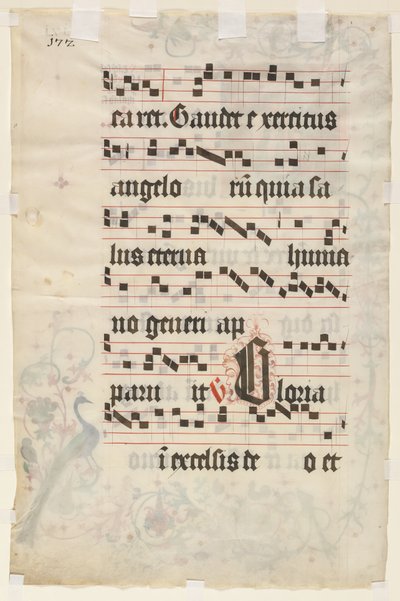 172
ca ret. Gaudet e xercitus
angelo rū quia sa
lus eterna huma
no generi ap
paru it G Gloria
ī excelsis de o et